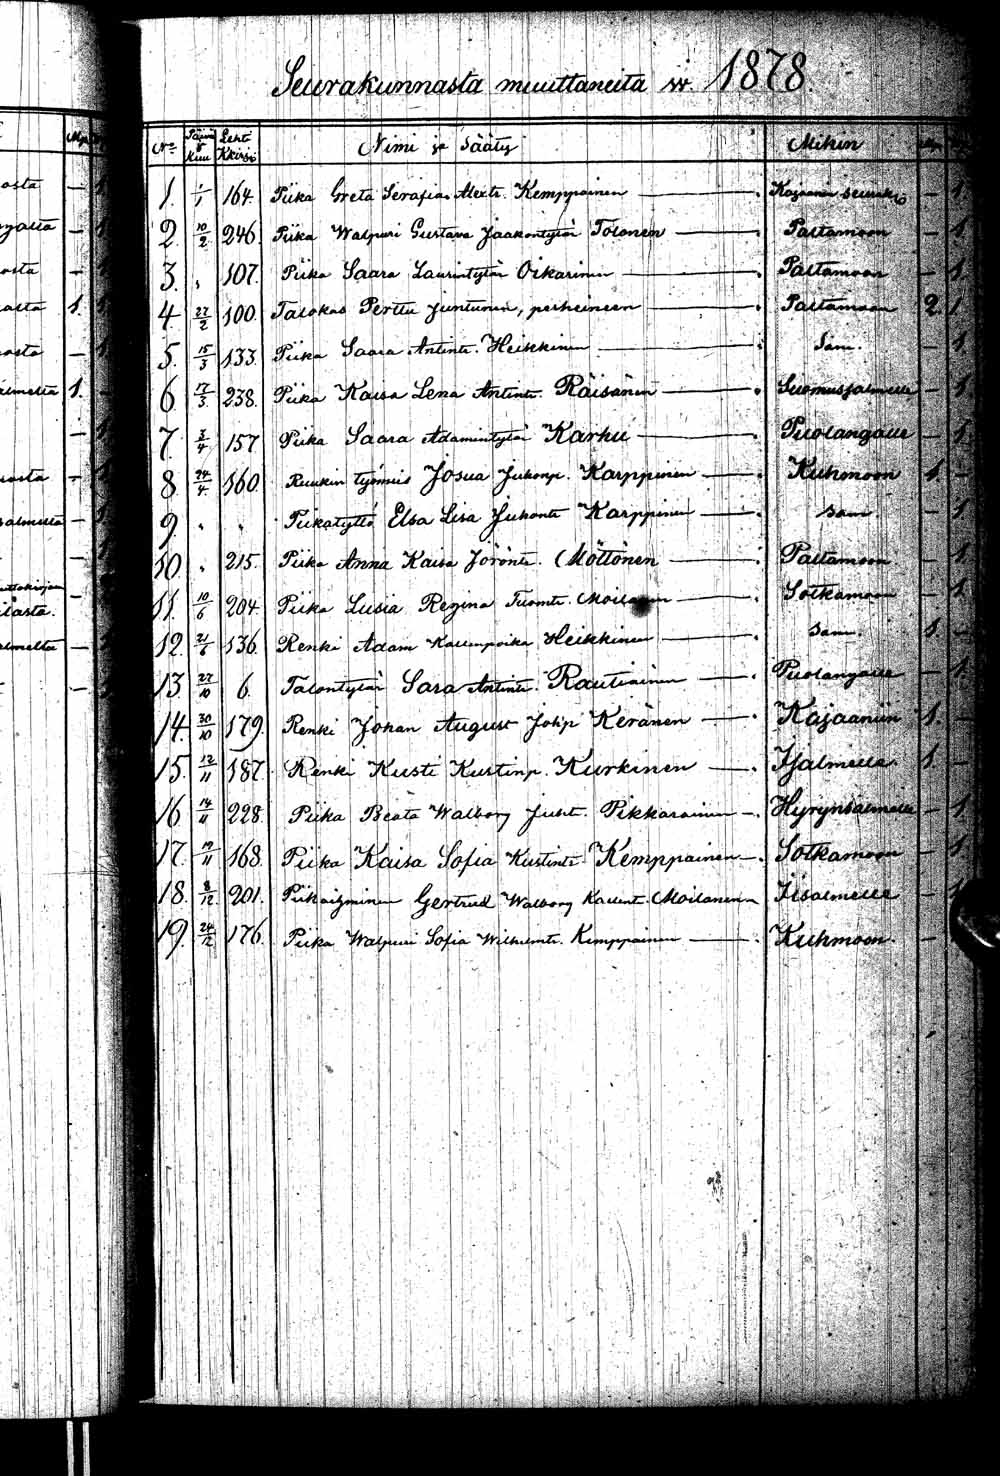 Seurakunnasta muuttaneita w. 1878.
No Päivä & Kuu Lehti Kkirjss Nimi ja Sääty Mihin Mp.
1. 1/1 164. Piika Greta Serafia Alextr. Kemppainen — Kajaanin seurak. — 1.
2. 10/2 246. Piika Walpuri Gustava Jaakontytär Tolonen — Paltamoon — 1.
3. " 107. Piika Saara Laurintytär Oikarinen — Paltamoon — 1.
4. 22/2 100. Talokas Perttu Juntunen, perheineen — Paltamoon 2. 1.
5. 15/3 133. Piika Saara Antintr. Heikkinen — Sam. — 1.
6. 17/3 238. Piika Kaisa Lena Antintr. Räisänen — Suomusjalmelle — 1.
7. 3/4 157 Piika Saara Adamintytär Karhu — Puolangalle — 1.
8. 24/4 160. Ruukin työmies Josua Juhonp. Karppinen — Kuhmoon 1. —
9. " " Piikatyttö Elsa Lisa Juhontr Karppinen — Sam. — 1.
10. " 215. Piika Anna Kaisa Jöröntr. Möttönen — Paltamoon — 1.
11. 10/6 204. Piika Lusia Regina Tuomtr. Moilanen — Sotkamoon — 1.
12. 21/6 136. Renki Adam Kallenpoika Heikkinen — Sam. 1. —
13. 22/10 6. Talontytär Sara Antintr. Rautiainen — Puolangalle — 1.
14. 30/10 179. Renki Johan August Johp Keränen — Kajaaniin 1. —
15. 12/11 187. Renki Kusti Kustinp. Kurkinen — Ijsalmelle 1. —
16 14/11 228. Piika Beata Walborg Juhtr. Pikkarainen — Hyrynsalmelle — 1.
17. 19/11 168. Piika Kaisa Sofia Kustintr Kemppainen — Sotkamoon — 1.
18. 8/12 201. Gertrud Walborg Kallentr. Moilanen Iisalmelle — 1.
19. 24/12 176. Piika Walpuri Sofia Wilhelmtr. Kemppainen — Kuhmoon —